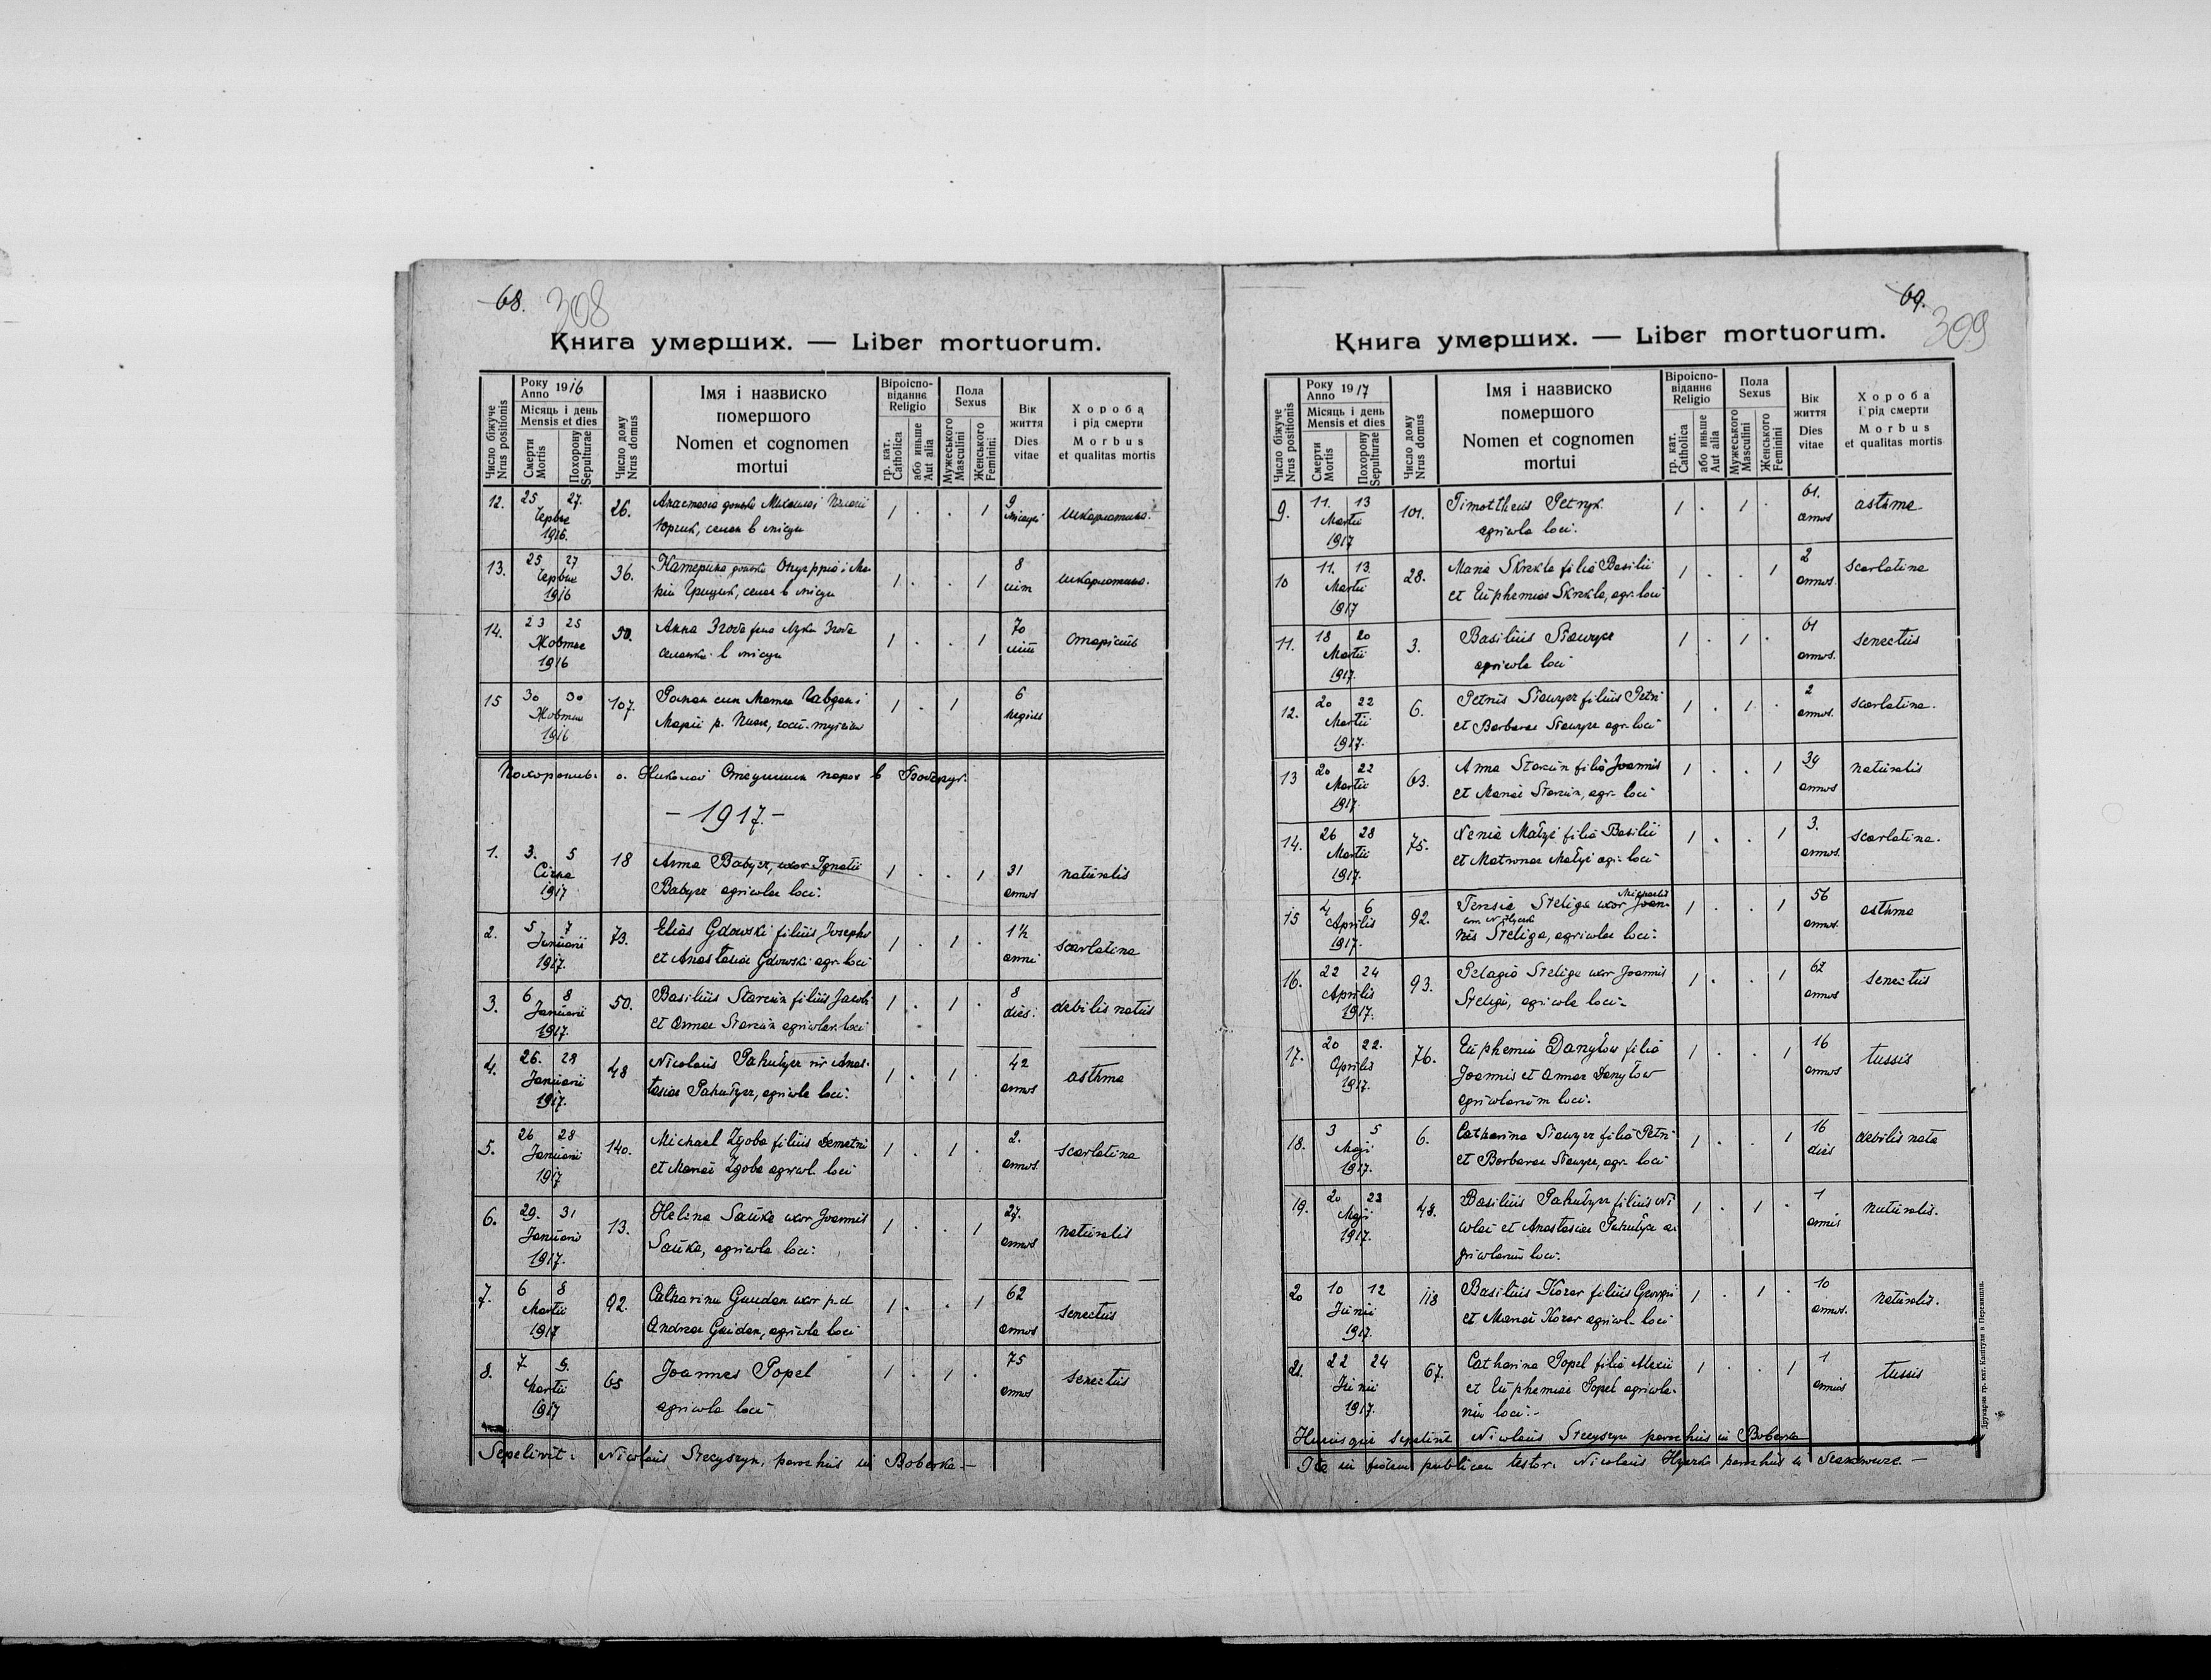 68. 308
Книга умерших. — Liber mortuorum.
Число біжуче Nrus positionis
Року Anno 1916
Місяць і день Mensis et dies
Смерти Mortis
Похорону Sepulturae
Число дому Nrus domus
Імя і назвиско
помершого
Nomen et cognomen
mortui
Віроіспо-
віданнє
Religio
гр. кат. Catholica
або иньше Aut alia
Пола
Sexus
Мужеського Masculini
Женського Feminini
Вік
життя
Dies
vitae
Хороба
і рід смерти
Morbus
et qualitas mortis
12. 25 27. 26. Анастазія донька Миколая 1 . . 1 9 шкарлятина.
1916. в місци
13. 25 27 36. Катерина донька Онуфрія і Ма- 1 . . 1 8 шкарлятина.
1916 рії Грицик, в місци літ
14. 23 25 50. Анна Згоба жена Згоба 1 . . 1 70 старість
Жовтня 1916 в місци літ
15 30 30 107. Роман син 1 . 1 6
Жовтня 1916 Марії
Похоронив: о. Николай Стецишин парох в
- 1917. -
1. 3. 5 18 Anna Babycz, uxor Ignatii 1 . . 1 31 naturalis
1917 Babycz agricolae loci: annos
2. 5 7 73. Elias Gdowski filius Josephi 1 . 1 . 1½ scarlatina
Januarii 1917. et Anastasiae Gdowski agr. loci anni
3. 6 8 50. Basilius Starcun filius Jacobi 1 . 1 . 8 debilis natus
Januarii 1917. et Annae Starcun agricolar. loci dies:
4. 26. 28 48 Nicolaus Pakutycz vir Anas- 1 . 1 . 42 asthma
Januarii 1917. tasiae Pakutycz, agricola loci: annos
5. 26 28 140. Michael Zgoba filius Demetrii 1 . 1 . 2. scarlatina
Januarii 1917 et Mariae Zgoba agricol. loci annos.
6. 29. 31 13. Helena Sawka uxor Joannis 1 . . 1 27. naturalis
Januarii 1917. Sawka, agricola loci: annos
7. 6 8 92. Catharina Guidan uxor p.d. 1 . . 1 62 senectus
Martii 1917 Andreae Guidan, agricola loci annos
8. 7 9. 65 Joannes Popel 1 . 1 . 75 senectus
Martii 1917 agricola loci annos
Sepelivit: Nicolaus Stecyszyn, parochus in Boberka -
69. 309
Книга умерших. — Liber mortuorum.
Число біжуче Nrus positionis
Року Anno 1917
Місяць і день Mensis et dies
Смерти Mortis
Похорону Sepulturae
Число дому Nrus domus
Імя і назвиско
помершого
Nomen et cognomen
mortui
Віроіспо-
віданнє
Religio
гр. кат. Catholica
або иньше Aut alia
Пола
Sexus
Мужеського Masculini
Женського Feminini
Вік
життя
Dies
vitae
Хороба
і рід смерти
Morbus
et qualitas mortis
9. 11. 13 101. Timottheus Petryk 1 . 1 . 61. asthma
Martii 1917 agricola loci: annos
10 11. 13. 28. Maria Skrekla filia Basilii 1 . . 1 2 scarlatina
Martii 1917 et Euphemiae Skrekla, agr. loci annos.
11. 18 20 3. Basilius Siawycz 1 . 1 . 61 senectus
Martii 1917. agricola loci annos.
12. 20 22 6. Petrus Siawycz filius Petri 1 . 1 . 2 scarlatina.
Martii 1917. et Barbarae Siawycz agr. loci annos.
13 20 22 63. Anna Starcun filia Joannis 1 . . 1 39 naturalis
Martii 1917. et Mariae Starcun, agr. loci annos
14. 26 28 75. Xenia Małyj filia Basilii 1 . . 1 3. scarlatina.
Martii 1917. et Matronae Małyj agr. loci annos.
Michaelis
15 4 6 92. Steliga uxor Joan- 1 . . 1 56 asthma
Aprilis 1917. nis Steliga, agricolae loci: annos.
16. 22 24 93. Pelagia Steliga uxor Joannis 1 . . 1 62 senectus
Aprilis 1917. Steliga, agricola loci - annos
17. 20 22. 76. Euphemia Danyłow filia 1 . . 1 16 tussis
Aprilis 1917. Joannis et Annae Danyłow annos
agricolarum loci.
18. 3 5 6. Catharina Siawycz filia Petri 1 . . 1 16 debilis nata
Maji 1917. et Barbarae Siawycz, agr. loci dies
19. 20 23 48. Basilius Pakutycz filius Ni 1 . 1 . 1 naturalis.
Maji 1917. colai et Anastasiae Pakutycz a- annus
gricolarum loci.
20 10 12 118 Basilius Kozar filius Georgii 1 . 1 . 10 naturalis.
Junii 1917. et Mariae Kozar agricol. loci annos.
21. 22 24 67. Catharina Popel filia Alexii 1 . . 1 1 tussis
Junii 1917. et Euphemiae Popel agricola- annus
rum loci: -
Hucusque sepelivit Nicolaus Stecyszyn parochus in Boberka
Ita in fidem publicam testor. Nicolaus parochus in
Друкарня гр. кат. Капітули в Перемишли.